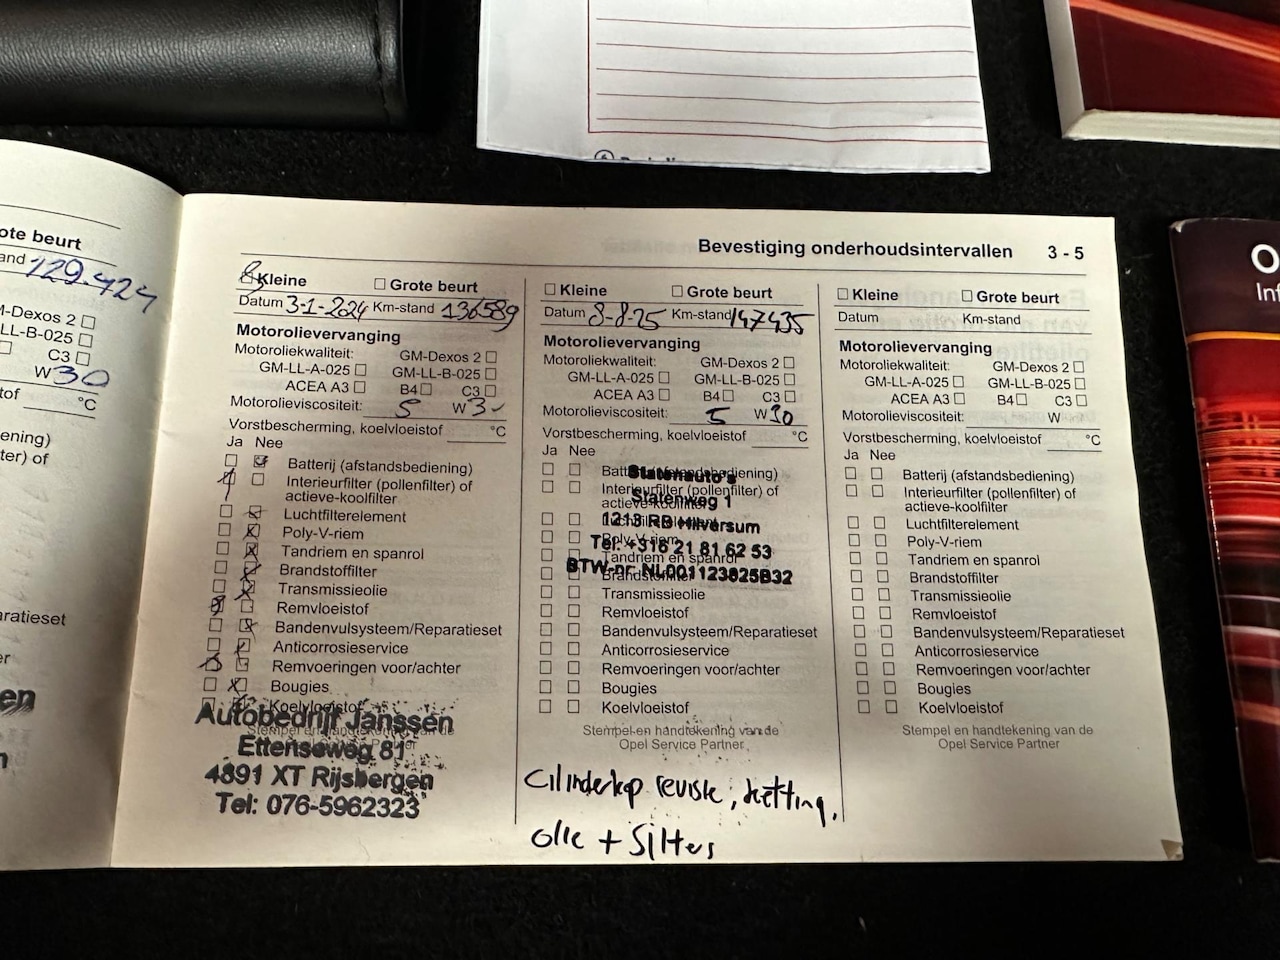 ote beurt
and 129.424
M-Dexos 2
LL-B-025
C3
W30
tof °C
ening)
ter) of
aratieset
er
en
Bevestiging onderhoudsintervallen 3 - 5
Kleine Grote beurt
Datum 3-1-2024 Km-stand 136589
Motorolievervanging
Motoroliekwaliteit: GM-Dexos 2
GM-LL-A-025 GM-LL-B-025
ACEA A3 B4 C3
Motorolieviscositeit: 5 W 3-
Vorstbescherming, koelvloeistof °C
Ja Nee
Batterij (afstandsbediening)
Interieurfilter (pollenfilter) of
actieve-koolfilter
Luchtfilterelement
Poly-V-riem
Tandriem en spanrol
Brandstoffilter
Transmissieolie
Remvloeistof
Bandenvulsysteem/Reparatieset
Anticorrosieservice
Remvoeringen voor/achter
Bougies
Koelvloeistof
Autobedrijf Janssen
Ettenseweg 81
4891 XT Rijsbergen
Tel: 076-5962323
Kleine Grote beurt
Datum 8-8-25 Km-stand 147435
Motorolievervanging
Motoroliekwaliteit: GM-Dexos 2
GM-LL-A-025 GM-LL-B-025
ACEA A3 B4 C3
Motorolieviscositeit: 5 W30
Vorstbescherming, koelvloeistof °C
Ja Nee
Batterij (afstandsbediening)
Interieurfilter (pollenfilter) of
actieve-koolfilter
Luchtfilterelement
Poly-V-riem
Tandriem en spanrol
Brandstoffilter
Statenauto's
Statenweg 1
1213 RB Hilversum
Tel. +316 21 81 62 53
BTW-nr. NL001123825B32
Transmissieolie
Remvloeistof
Bandenvulsysteem/Reparatieset
Anticorrosieservice
Remvoeringen voor/achter
Bougies
Koelvloeistof
Stempel en handtekening van de
Opel Service Partner
Cilinderkop revisie, ketting,
olie + filters
Kleine Grote beurt
Datum Km-stand
Motorolievervanging
Motoroliekwaliteit: GM-Dexos 2
GM-LL-A-025 GM-LL-B-025
ACEA A3 B4 C3
Motorolieviscositeit: W
Vorstbescherming, koelvloeistof °C
Ja Nee
Batterij (afstandsbediening)
Interieurfilter (pollenfilter) of
actieve-koolfilter
Luchtfilterelement
Poly-V-riem
Tandriem en spanrol
Brandstoffilter
Transmissieolie
Remvloeistof
Bandenvulsysteem/Reparatieset
Anticorrosieservice
Remvoeringen voor/achter
Bougies
Koelvloeistof
Stempel en handtekening van de
Opel Service Partner
O
Inf